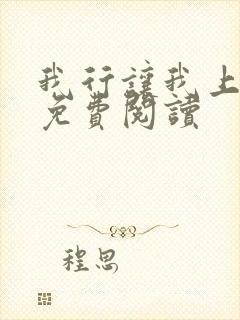 我行讓我上
免費閱讀
程思